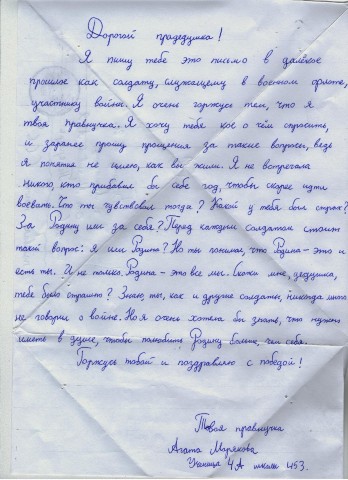 Дорогой прадедушка!
Я пишу тебе это письмо в далёкое
прошлое как солдату, служащему в военном флоте,
участнику войны. Я очень горжусь тем, что я
твоя правнучка. Я хочу тебя кое о чём спросить,
и заранее прошу прощения за такие вопросы, ведь
я понятия не имею, как вы жили. Я не встречала
никого, кто прибавил бы себе год, чтобы скорее идти
воевать. Что ты чувствовал тогда? Какой у тебя был страх?
За Родину или за себя? Перед каждым солдатом стоит
такой вопрос: я или Родина? Но ты понимал, что Родина - это и
есть ты. И не только. Родина - это все мы. Скажи мне, дедушка,
тебе было страшно? Знаю ты, как и другие солдаты, никогда много
не говорил о войне. Но я очень хотела бы знать, что нужно
иметь в душе, чтобы полюбить Родину больше, чем себя.
Горжусь тобой и поздравляю с победой!
Твоя правнучка
Агата
Ученица 4А школы 453.